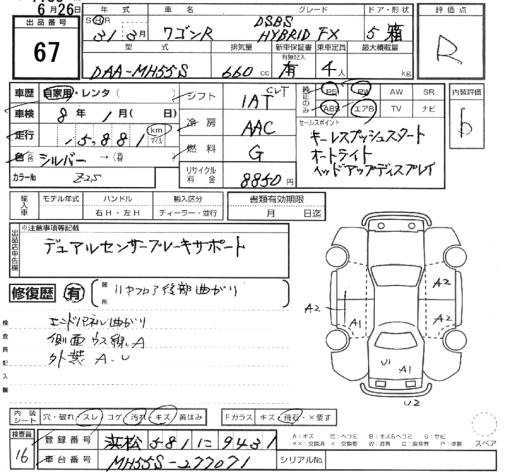 6月26日
出品番号 67
年式 車名 グレード ドア・形状 評価点
31 3月 ワゴンR DSBS HYBRID FX 5 箱 R
型式 排気量 新車保証書 乗車定員 最大積載量
有無記入
DAA-MH55S 660 cc 有 4人 kg
車歴 自家用・レンタ ( シフト CVT IAT 純正のみ PS PW AW SR 内装評価
ABS エアB TV ナビ b
車検 8年1月( 日) 冷房 AAC セールスポイント
走行 15,881 km 燃料 G キーレスプッシュスタート
色 シルバー リサイクル料金 8850円 オートライト
カラーNo Z2S ヘッドアップディスプレイ
輸入車 モデル年式 ハンドル 輸入区分 書類有効期限
右H・左H ディーラー・並行 月 日迄
出品店申告欄 ※注意事項等記載
デュアルセンサーブレーキサポート
修復歴 有 箇所 リヤフロア後部曲がり
検査員記入欄
エンドパネル曲がり
側面ウス線A
外装 A.U
A2 A1 A2 A2
U1 A1
U2
内装シート 穴・破れ スレ コゲ 汚れ キズ 黄ばみ Fガラス キズ 飛石 ×要す
A:キズ E:ヘコミ B:キズ&ヘコミ S:サビ
スペア
検査員 16 登録番号 浜松 581 に 9431
車台番号 MH55S-277071 シリアルNo.